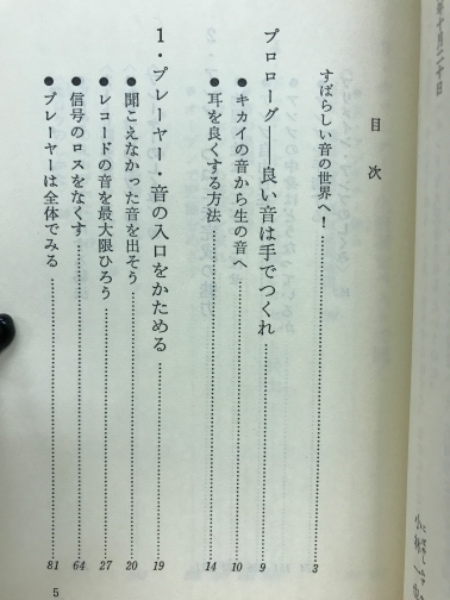 目次
すばらしい音の世界へ！……3
プロローグ――良い音は手でつくれ……9
●キカイの音から生の音へ……10
●耳を良くする方法……14
1・プレーヤー・音の入口をかためる……19
●聞こえなかった音を出そう……20
●レコードの音を最大限ひろう……27
●信号のロスをなくす……64
●プレーヤーは全体でみる……81
5
年十月二十日